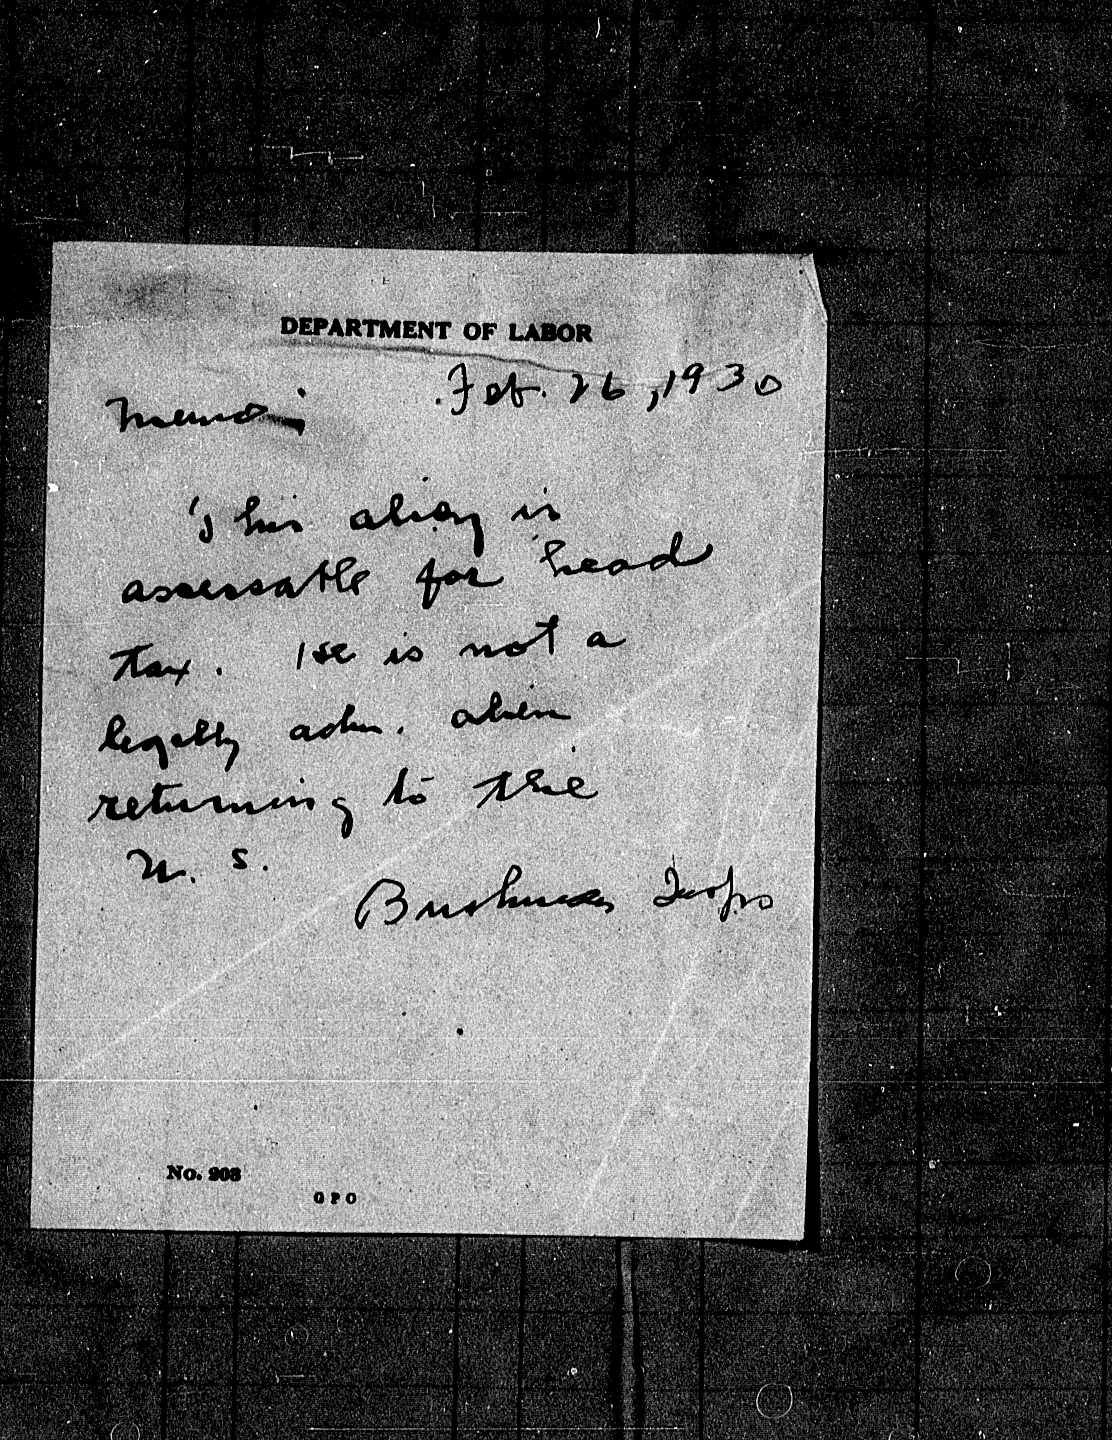 DEPARTMENT OF LABOR
Feb. 26, 1930
Memo:
This alien is
assessable for head
tax. He is not a
legally adm. alien
returning to the
U. S.
No. 908
GPO